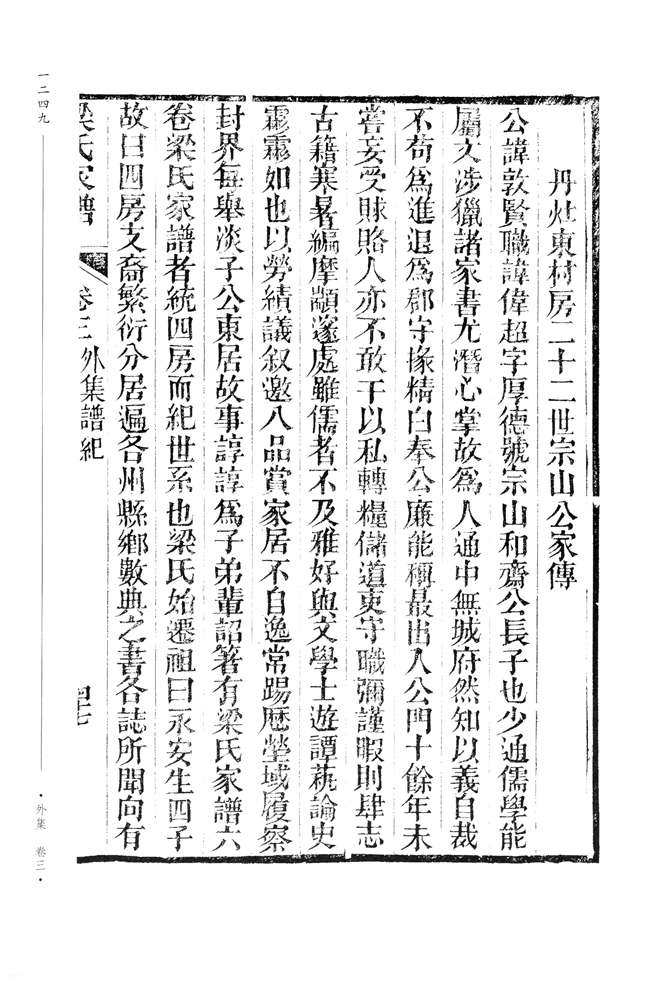 丹灶東村房二十二世宗山公家傳
公諱敦賢職諱偉超字厚德號宗山和齋公長子也少通儒學能
屬文涉獵諸家書尤潛心掌故爲人通中無城府然知以義自裁
不苟爲進退爲郡守掾精白奉公廉能稱最出入公門十餘年未
嘗妄受賕賂人亦不敢干以私轉糧儲道吏守職彌謹暇則肆志
古籍寒暑編摩顓邃處雖儒者不及雅好與文學士遊譚蓺論史
霏霏如也以勞績議叙邀八品賞家居不自逸常踢厯塋域履察
封界每舉淡子公東居故事諄諄爲子弟輩詔箸有梁氏家譜六
卷梁氏家譜者統四房而紀世系也梁氏始遷祖曰永安生四子
故曰四房支裔繁衍分居遍各州縣鄉數典之書各誌所聞向有
梁氏家譜 卷三 外集譜紀 四七
一二四九
·外集 卷三·